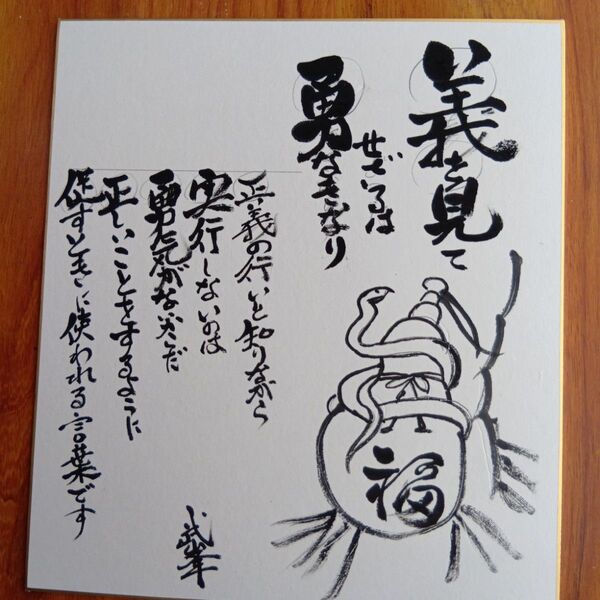 義を見て
せざるは
勇なきなり
正義の行いと知りながら
実行しないのは
勇気がないからだ
正しいことをするように
促すときに使われる言葉です
武峯
福